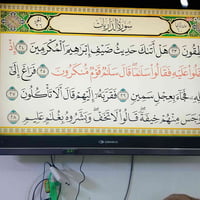 سُورَةُ الذَّارِيَاتِ
تَنطِقُونَ ﴿٢٣﴾ هَلْ أَتَىٰكَ حَدِيثُ ضَيْفِ إِبْرَٰهِيمَ ٱلْمُكْرَمِينَ ﴿٢٤﴾ إِذْ
دَخَلُوا۟ عَلَيْهِ فَقَالُوا۟ سَلَٰمًا قَالَ سَلَٰمٌ قَوْمٌ مُّنكَرُونَ ﴿٢٥﴾ فَرَاغَ إِلَىٰٓ
أَهْلِهِۦ فَجَآءَ بِعِجْلٍ سَمِينٍ ﴿٢٦﴾ فَقَرَّبَهُۥٓ إِلَيْهِمْ قَالَ أَلَا تَأْكُلُونَ ﴿٢٧﴾
فَأَوْجَسَ مِنْهُمْ خِيفَةً قَالُوا۟ لَا تَخَفْ وَبَشَّرُوهُ بِغُلَٰمٍ عَلِيمٍ ﴿٢٨﴾